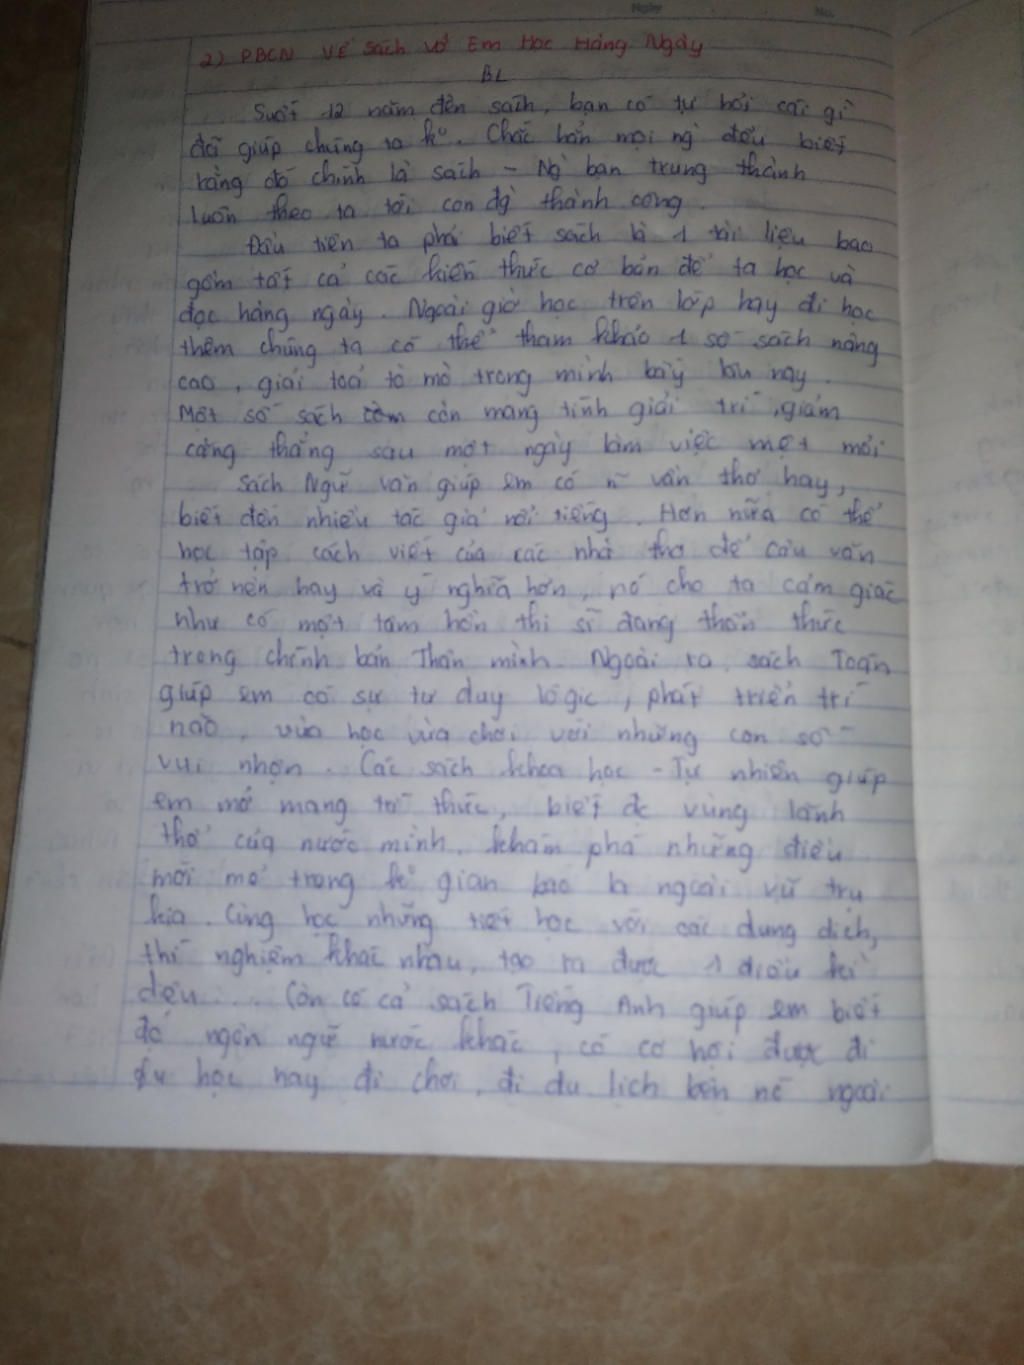 Ngày No.
2) PBCN Về Sách vở Em Học Hàng Ngày
BL
Suốt 12 năm đèn sách, bạn có tự hỏi cái gì
đã giúp chúng ta ko. Chắc hẳn mọi ng đều biết
rằng đó chính là sách - Ng bạn trung thành
luôn theo ta tới con đg thành công.
Đầu tiên ta phải biết sách là 1 tài liệu bao
gồm tất cả các kiến thức cơ bản để ta học và
đọc hàng ngày. Ngoài giờ học trên lớp hay đi học
thêm chúng ta có thể tham khảo 1 số sách nâng
cao, giải toả tò mò trong mình bấy lâu nay.
Một số sách còn mang tính giải trí, giảm
căng thẳng sau một ngày làm việc mệt mỏi
Sách Ngữ văn giúp em có n~ vần thơ hay,
biết đến nhiều tác giả nổi tiếng. Hơn nữa có thể
học tập cách viết của các nhà thơ để câu văn
trở nên hay và ý nghĩa hơn, nó cho ta cảm giác
như có một tâm hồn thi sĩ đang thổn thức
trong chính bản Thân mình. Ngoài ra, sách Toán
giúp em có sự tư duy lôgic, phát triển trí
não, vừa học vừa chơi với những con số
vui nhộn. Các sách khoa học - Tự nhiên giúp
em mở mang tri thức, biết đc vùng lãnh
thổ của nước mình, khám phá những điều
mới mẻ trong ko gian bao la ngoài vũ trụ
kia. Cùng học những tiết học với các dung dịch,
thí nghiệm khác nhau, tạo ra được 1 điều kì
diệu... Còn có cả sách Tiếng Anh giúp em biết
đc ngôn ngữ nước khác, có cơ hội được đi
du học hay đi chơi, đi du lịch bên nc ngoài